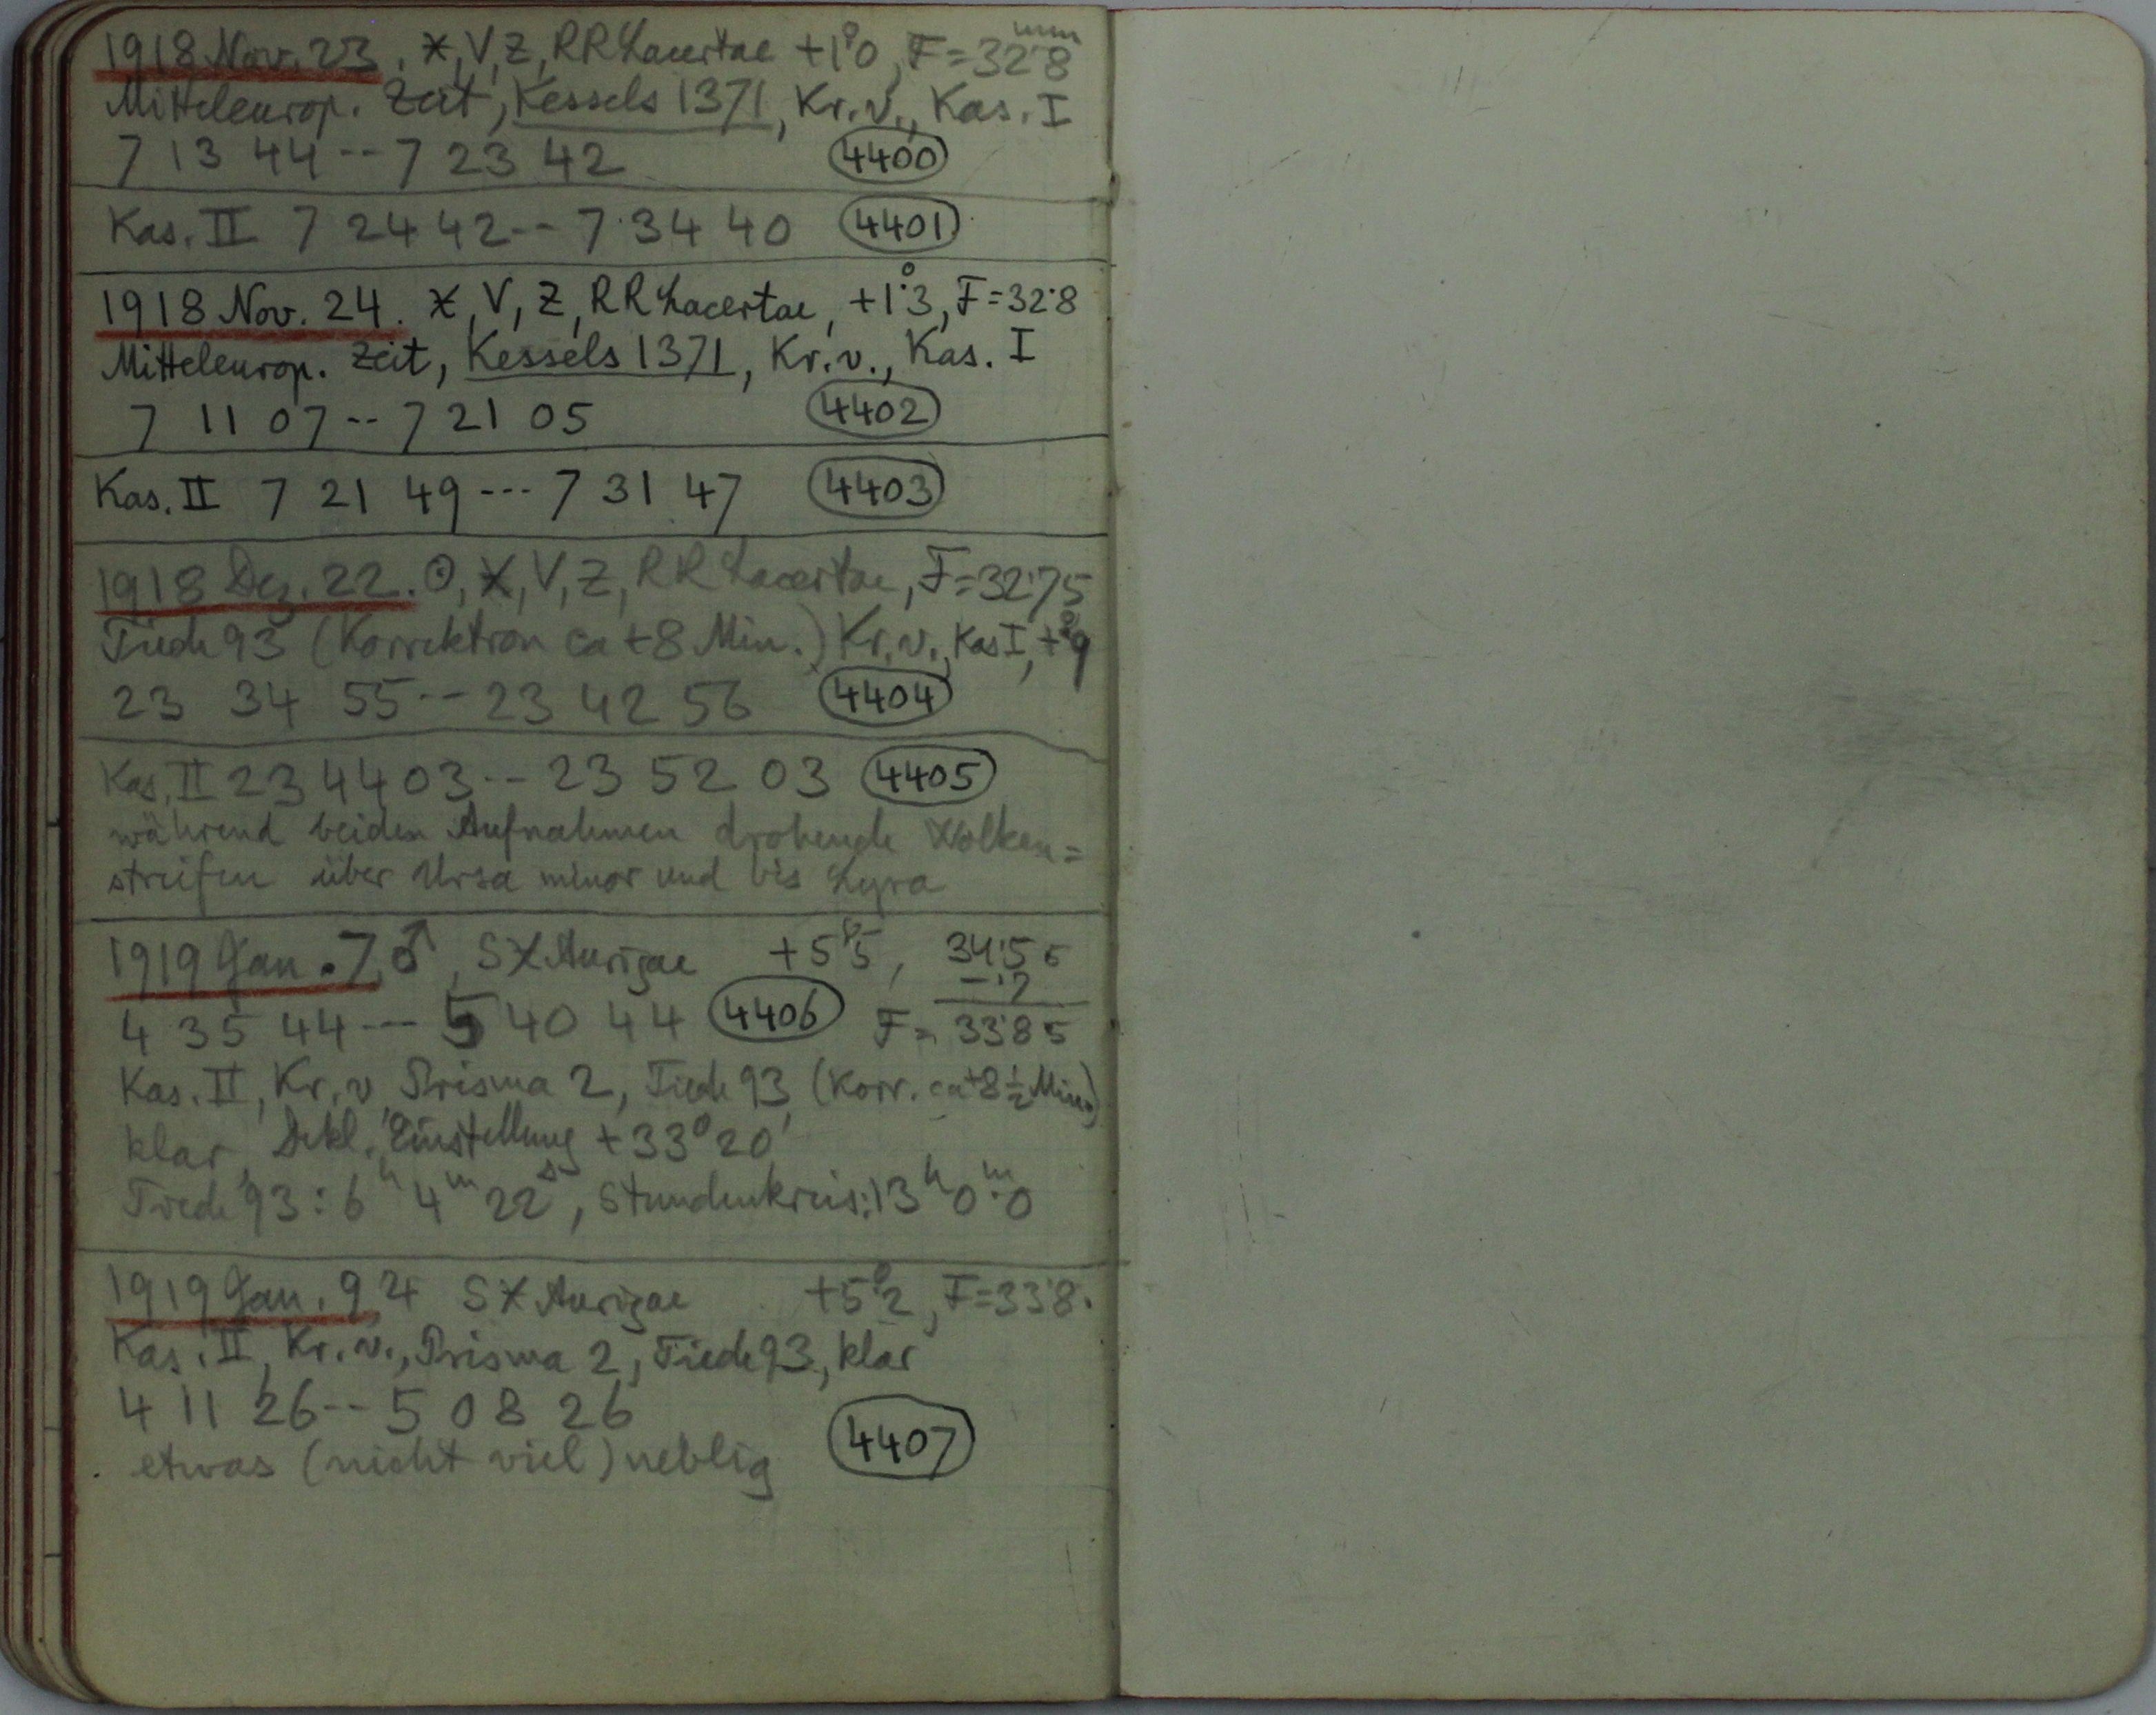 1918 Nov. 23. X, V, Z, RR Lacertae +1°0, F=32.8 mm
Mitteleurop. Zeit, Kessels 1371, Kr. v., Kas. I
7 13 44 -- 7 23 42 4400
Kas. II 7 24 42 -- 7 34 40 4401
1918 Nov. 24. X, V, Z, RR Lacertae, +1°.3, F=32.8
Mitteleurop. Zeit, Kessels 1371, Kr. v., Kas. I
7 11 07 -- 7 21 05 4402
Kas. II 7 21 49 --- 7 31 47 4403
1918 Dez. 22. ☉, X, V, Z, RR Lacertae, F=32.75
Tiede 93 (Korrektion ca +8 Min.) Kr. v., Kas I, +°9
23 34 55 -- 23 42 56 4404
Kas. II 23 44 03 -- 23 52 03 4405
während beiden Aufnahmen drohende Wolken=
streifen über Ursa minor und bis Lyra
1919 Jan. 7 ♂, SX Aurigae +5°5, 34.55
-.7
4 35 44 --- 5 40 44 4406 F= 33.85
Kas. II, Kr. v, Prisma 2, Tiede 93, (Korr. ca +8 1/2 Min.)
klar, Dekl. Einstellung +33°20'
Tiede 93: 6h 4m 22s, Stundenkreis: 13h 0m.0
1919 Jan. 9 ♃ SX Aurigae +5°2, F=33.8.
Kas. II, Kr. v., Prisma 2, Tiede 93, klar
4 11 26 -- 5 08 26
etwas (nicht viel) neblig 4407